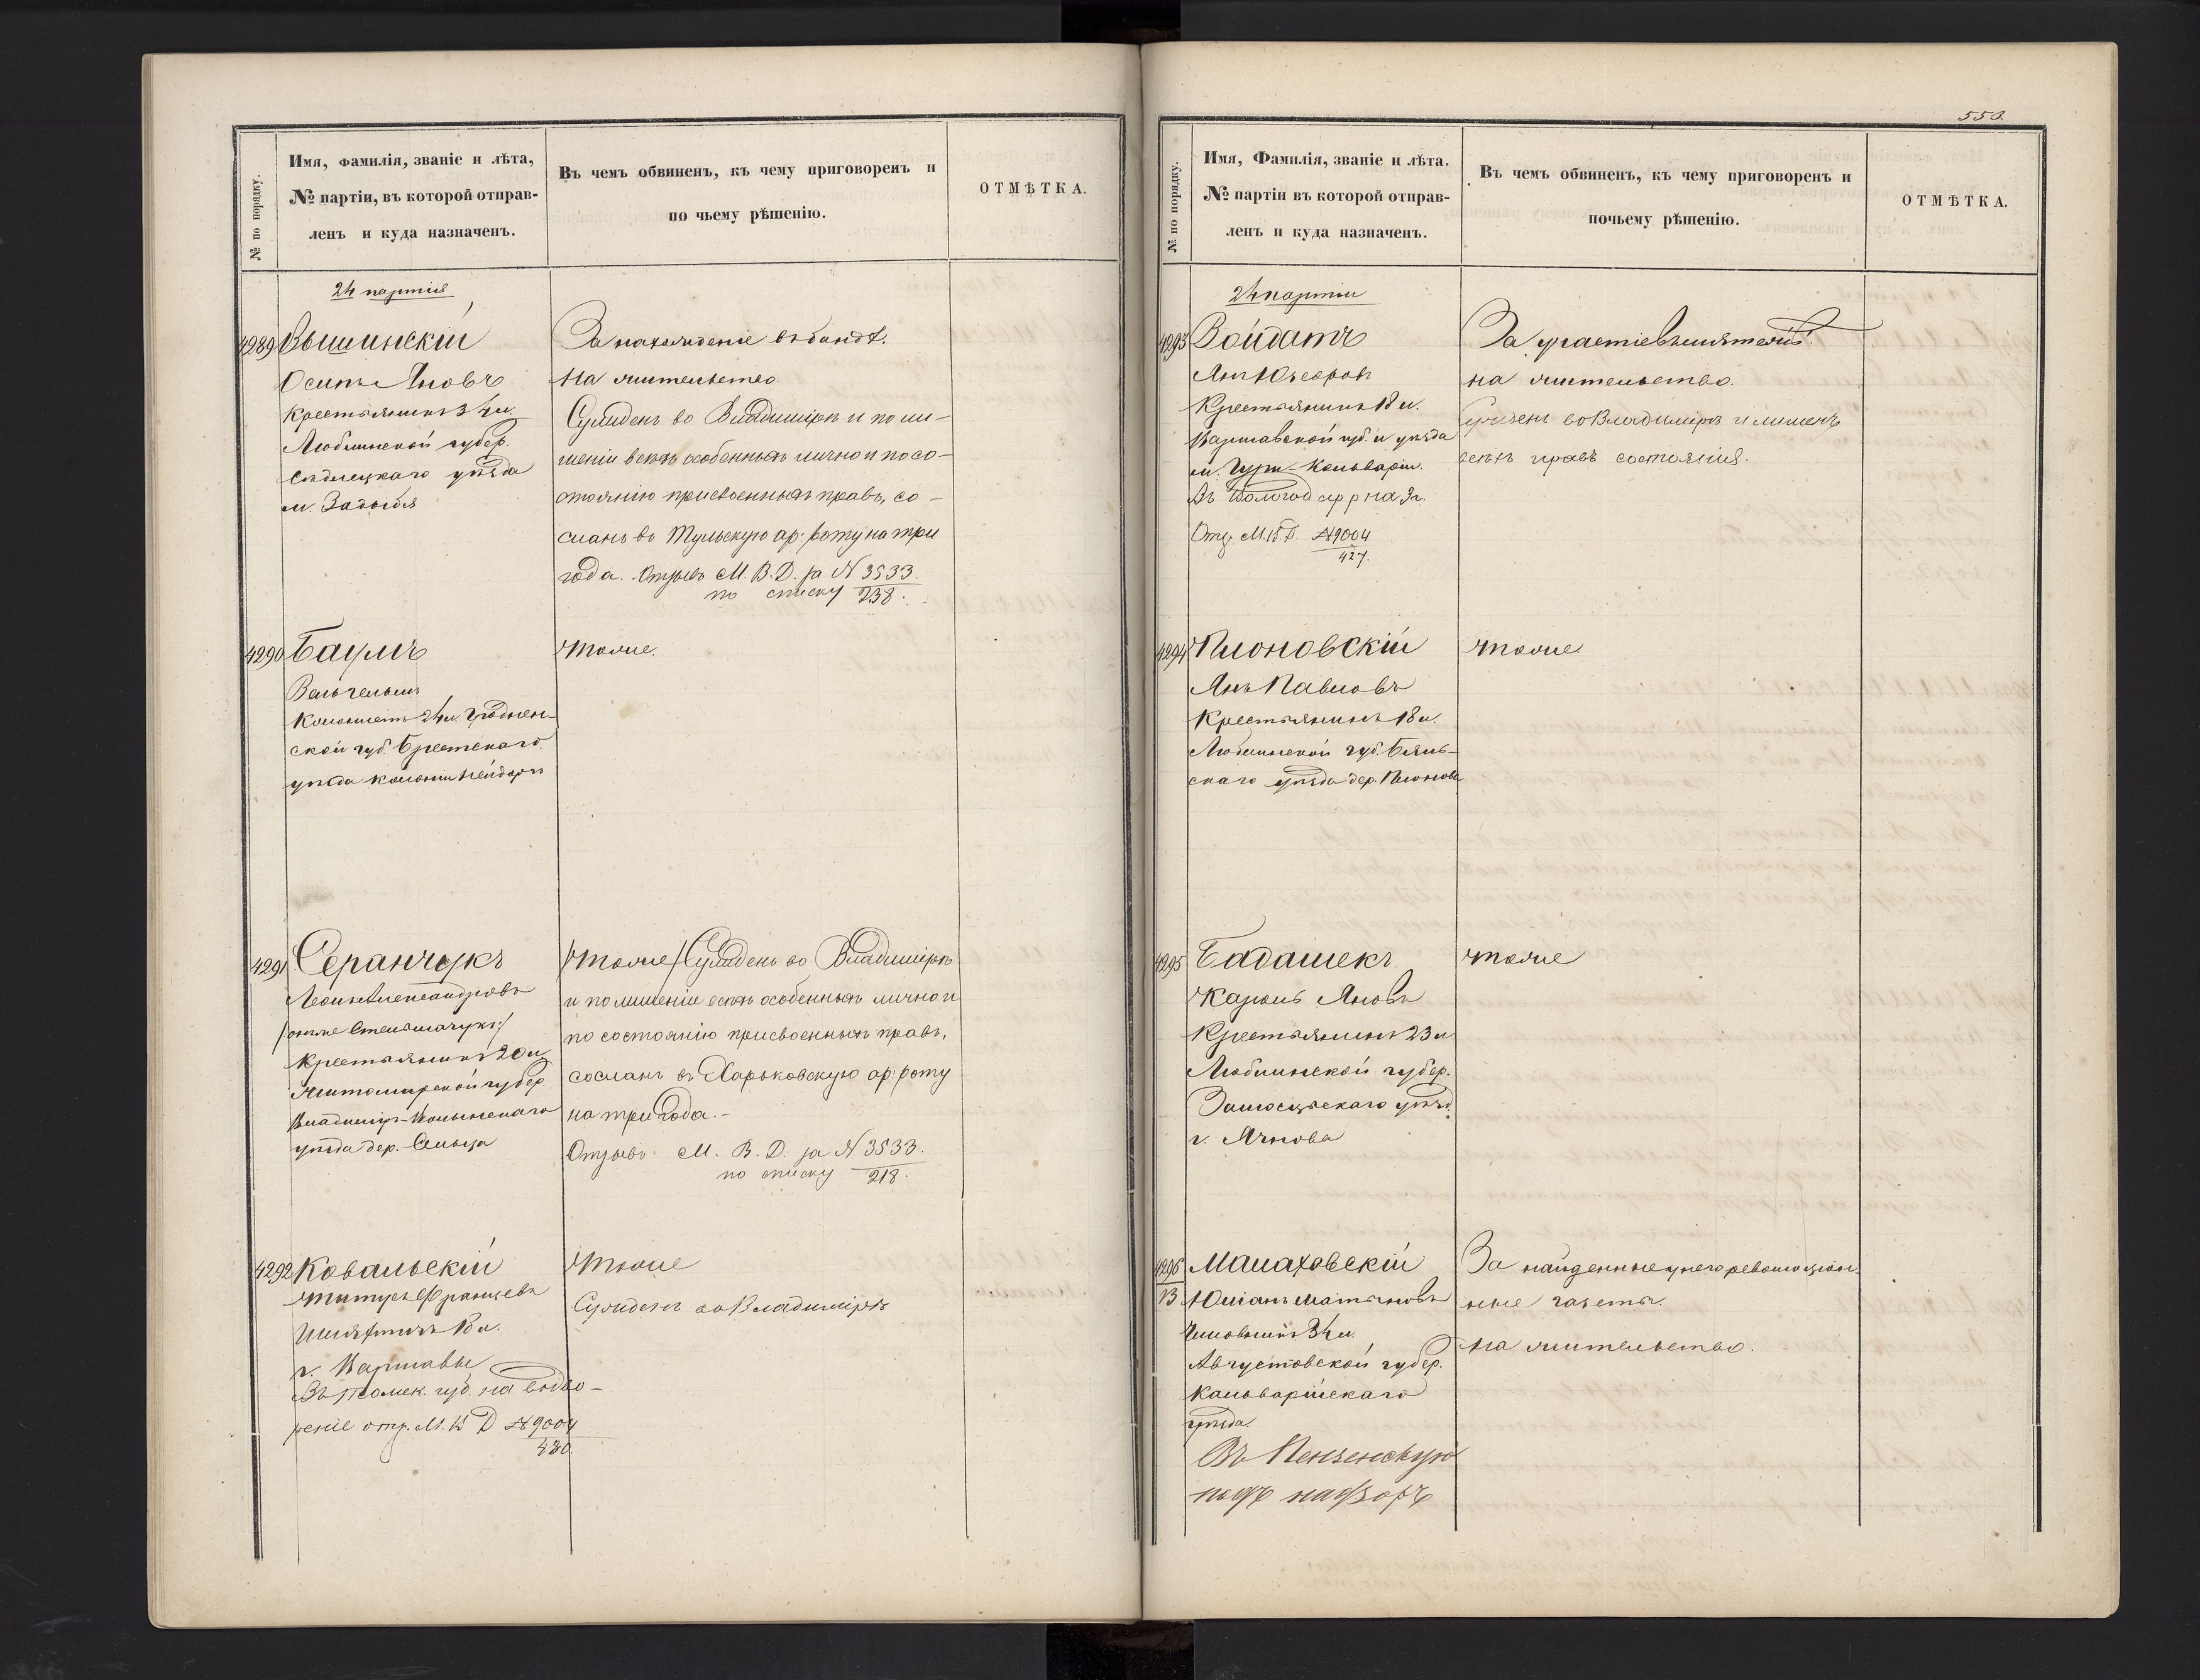 № по порядку.
Имя, фамилія, званіе и лѣта,
№ партіи, въ которой отправ-
ленъ и куда назначенъ.
Въ чемъ обвиненъ, къ чему приговоренъ и
по чьему рѣшенію.
ОТМѢТКА.
24 партія
4289
Вышинскій
Осипъ Яновъ
Крестьянинъ 34 л.
Люблинской губер.
Сѣдлецкаго уѣзда
м. Задыбя
За нахожденіе въ бандѣ.
На жительство.
Сужденъ во Владимірѣ и по ли-
шеніи всѣхъ особенныхъ лично и по со-
стоянію присвоенныхъ правъ, со-
сланъ въ Тульскую ар: роту на три
года. Отзывъ М. В. Д. за № 3533.
по списку 238.
4290
Баумъ
Вельгельмъ
Колонистъ 24 л. Гроднен-
ской губ. Брестскаго
уѣзда колоніи Нейдорфъ
Тоже.
4291
Серанчукъ
Леонъ Александровъ
/:онъ же Стельмачукъ:/
Крестьянинъ 20 л.
Житомирской губер.
Владимір-Волынскаго
уѣзда дер. Сельца
Тоже / Сужденъ во Владимірѣ
и по лишеніи всѣхъ особенныхъ лично и
по состоянію присвоенныхъ правъ,
сосланъ въ Харьковскую ар: роту
на три года.-
Отзывъ М. В. Д. за № 3533.
по списку 218.
4292
Ковальскій
Титусъ Францевъ
Шляхтичъ 18 л.
г. Варшавы
Въ Томск. губ. на водво-
реніе отз. М. В. Д № 9004
430.
Тоже
Сужденъ во Владимірѣ
553.
№ по порядку.
Имя, Фамилія, званіе и лѣта.
№ партіи въ которой отправ-
ленъ и куда назначенъ.
Въ чемъ обвиненъ, къ чему приговоренъ и
почьему рѣшенію.
ОТМѢТКА.
24 партіи
4293
Войдатъ
Янъ Юзефовъ
Крестьянинъ 18 л.
Варшавской губ. и уѣзда
м. Гури-Кальваріи.
Въ Вологод ар р на 3 г.
Отз. М. В. Д. № 9004
427.
За участіе въ мятежѣ.
на жительство.
Сужденъ во Владимірѣ и лишенъ
всѣхъ правъ состоянія.
4294
Плоновскій
Янъ Павловъ
Крестьянинъ 18 л.
Люблинской губ. Бяль-
скаго уѣзда дер. Плонова
Тоже.
4295
Бадашекъ
Кароль Яновъ
Крестьянинъ 23 л
Люблинской губер.
Замосцьскаго уѣзд.
г. Янова
Тоже
4296
13
Малаховскій
Юліанъ Матвѣовъ
Чиновникъ 34 л.
Августовской губер.
Кальварійскаго
уѣзда.
Въ Пензенскую
подъ надзоръ
За найденные у него революціон-
ные газеты.
На жительство.